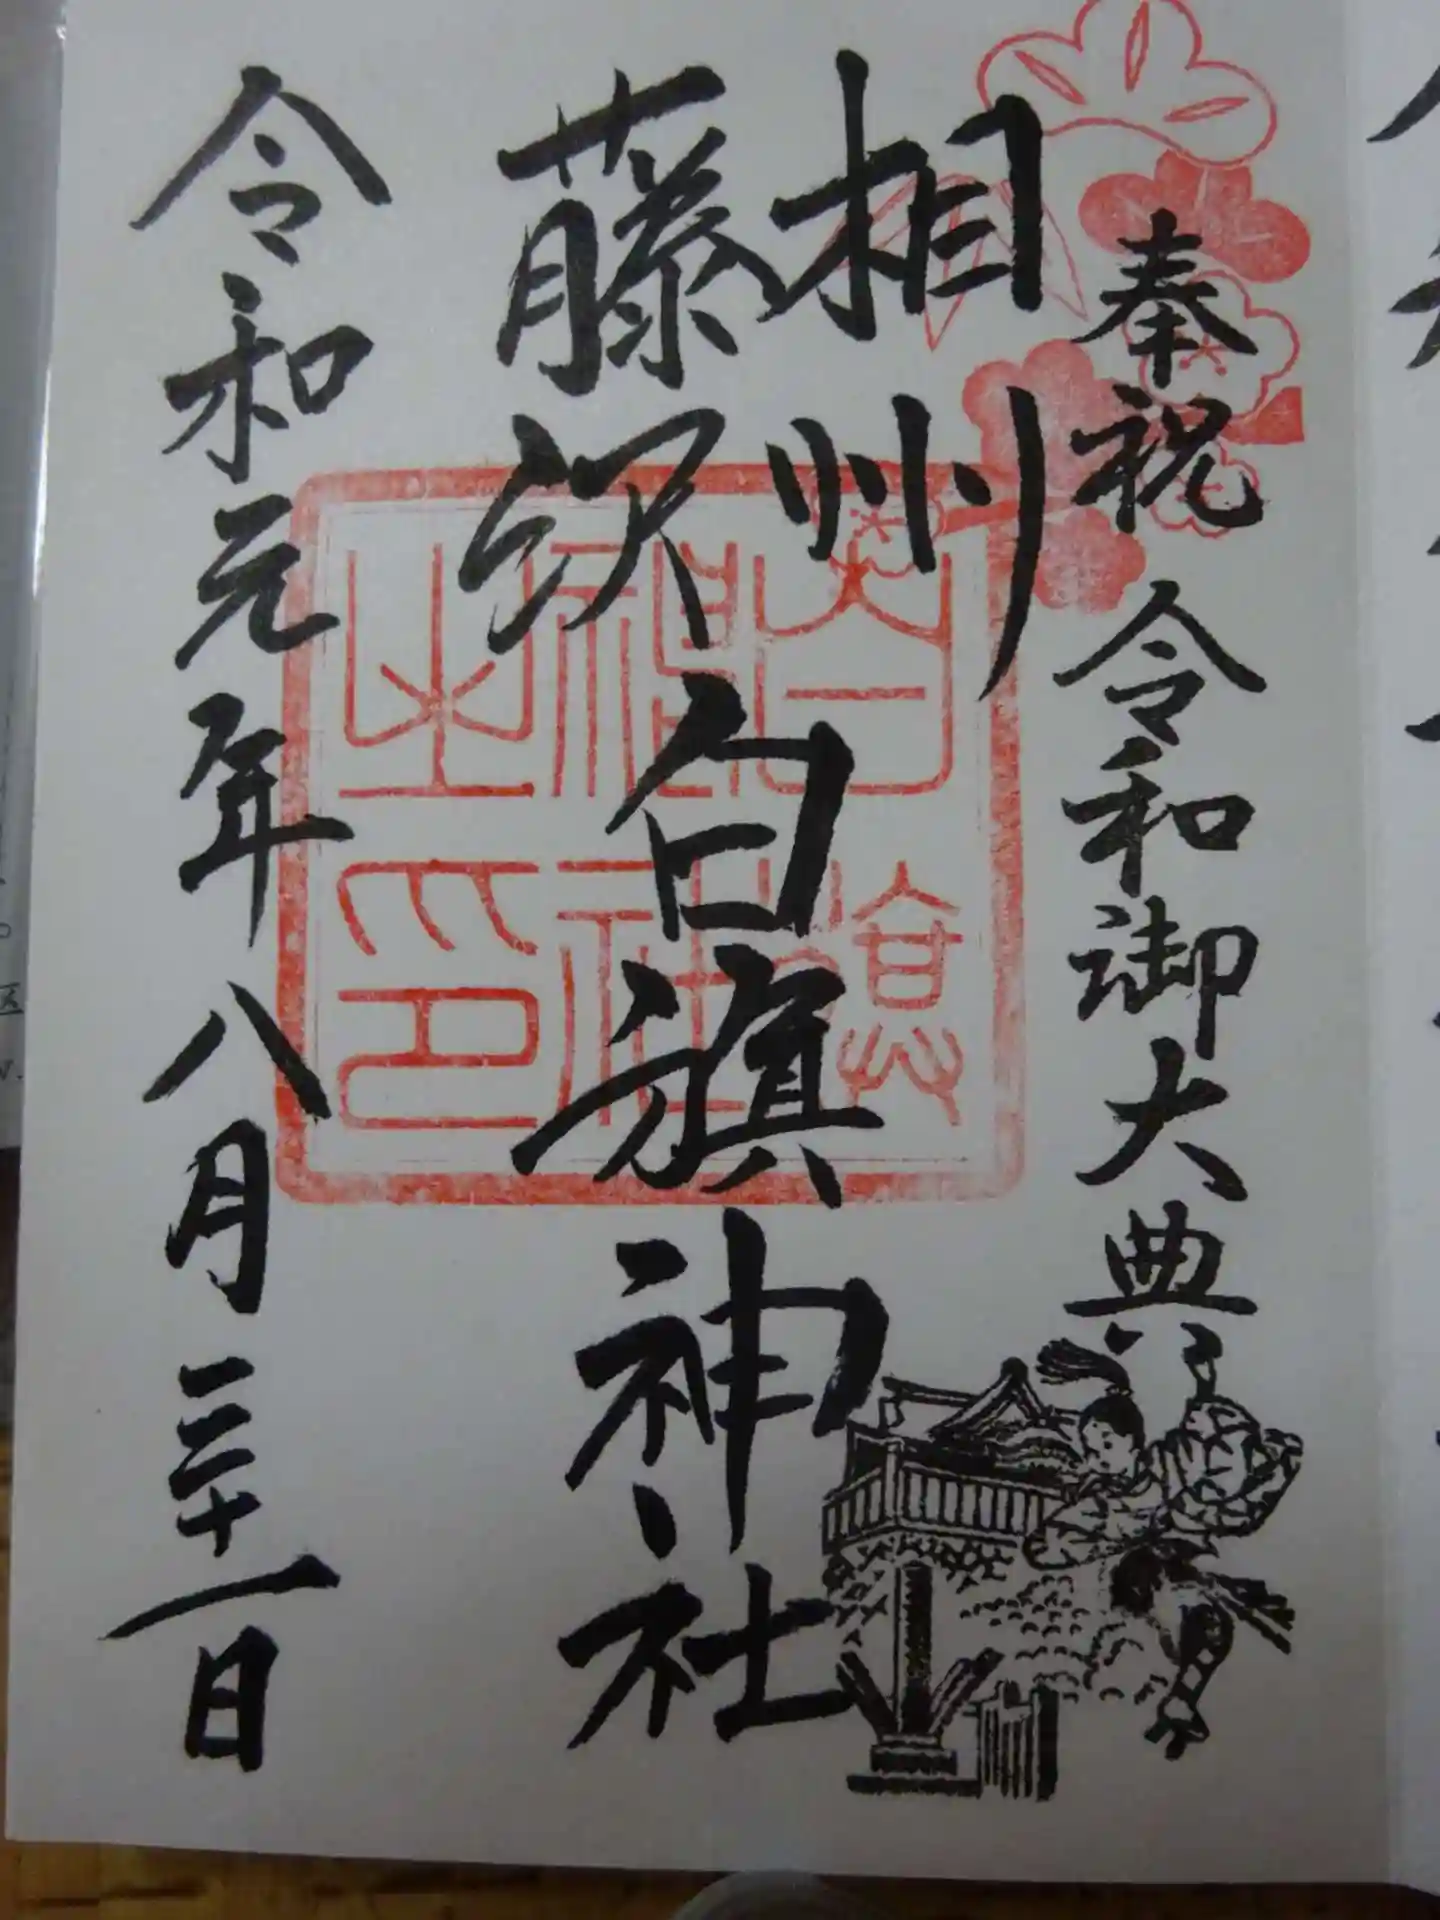 奉祝 令和御大典
相州
藤沢
白旗神社
白旗神社之印
令和元年八月三十一日